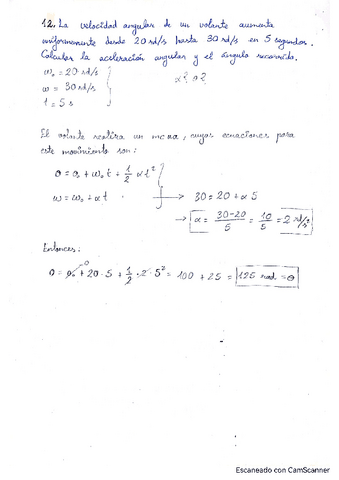 12. La velocidad angular de un volante aumenta
uniformemente desde 20 rd/s hasta 30 rd/s en 5 segundos.
Calcular la aceleración angular y el ángulo recorrido.
ω₀ = 20 rd/s
α? θ?
ω = 30 rd/s
t = 5 s
El volante realiza un mcua, cuyas ecuaciones para
este movimiento son:
θ = θ₀ + ω₀ t + 1/2 α t²
ω = ω₀ + αt → 30 = 20 + α 5
→ α = 30-20/5 = 10/5 = 2 rd/s²
Entonces:
θ = θ₀ + 20 · 5 + 1/2 · 2 · 5² = 100 + 25 = 125 rad = θ
Escaneado con CamScanner